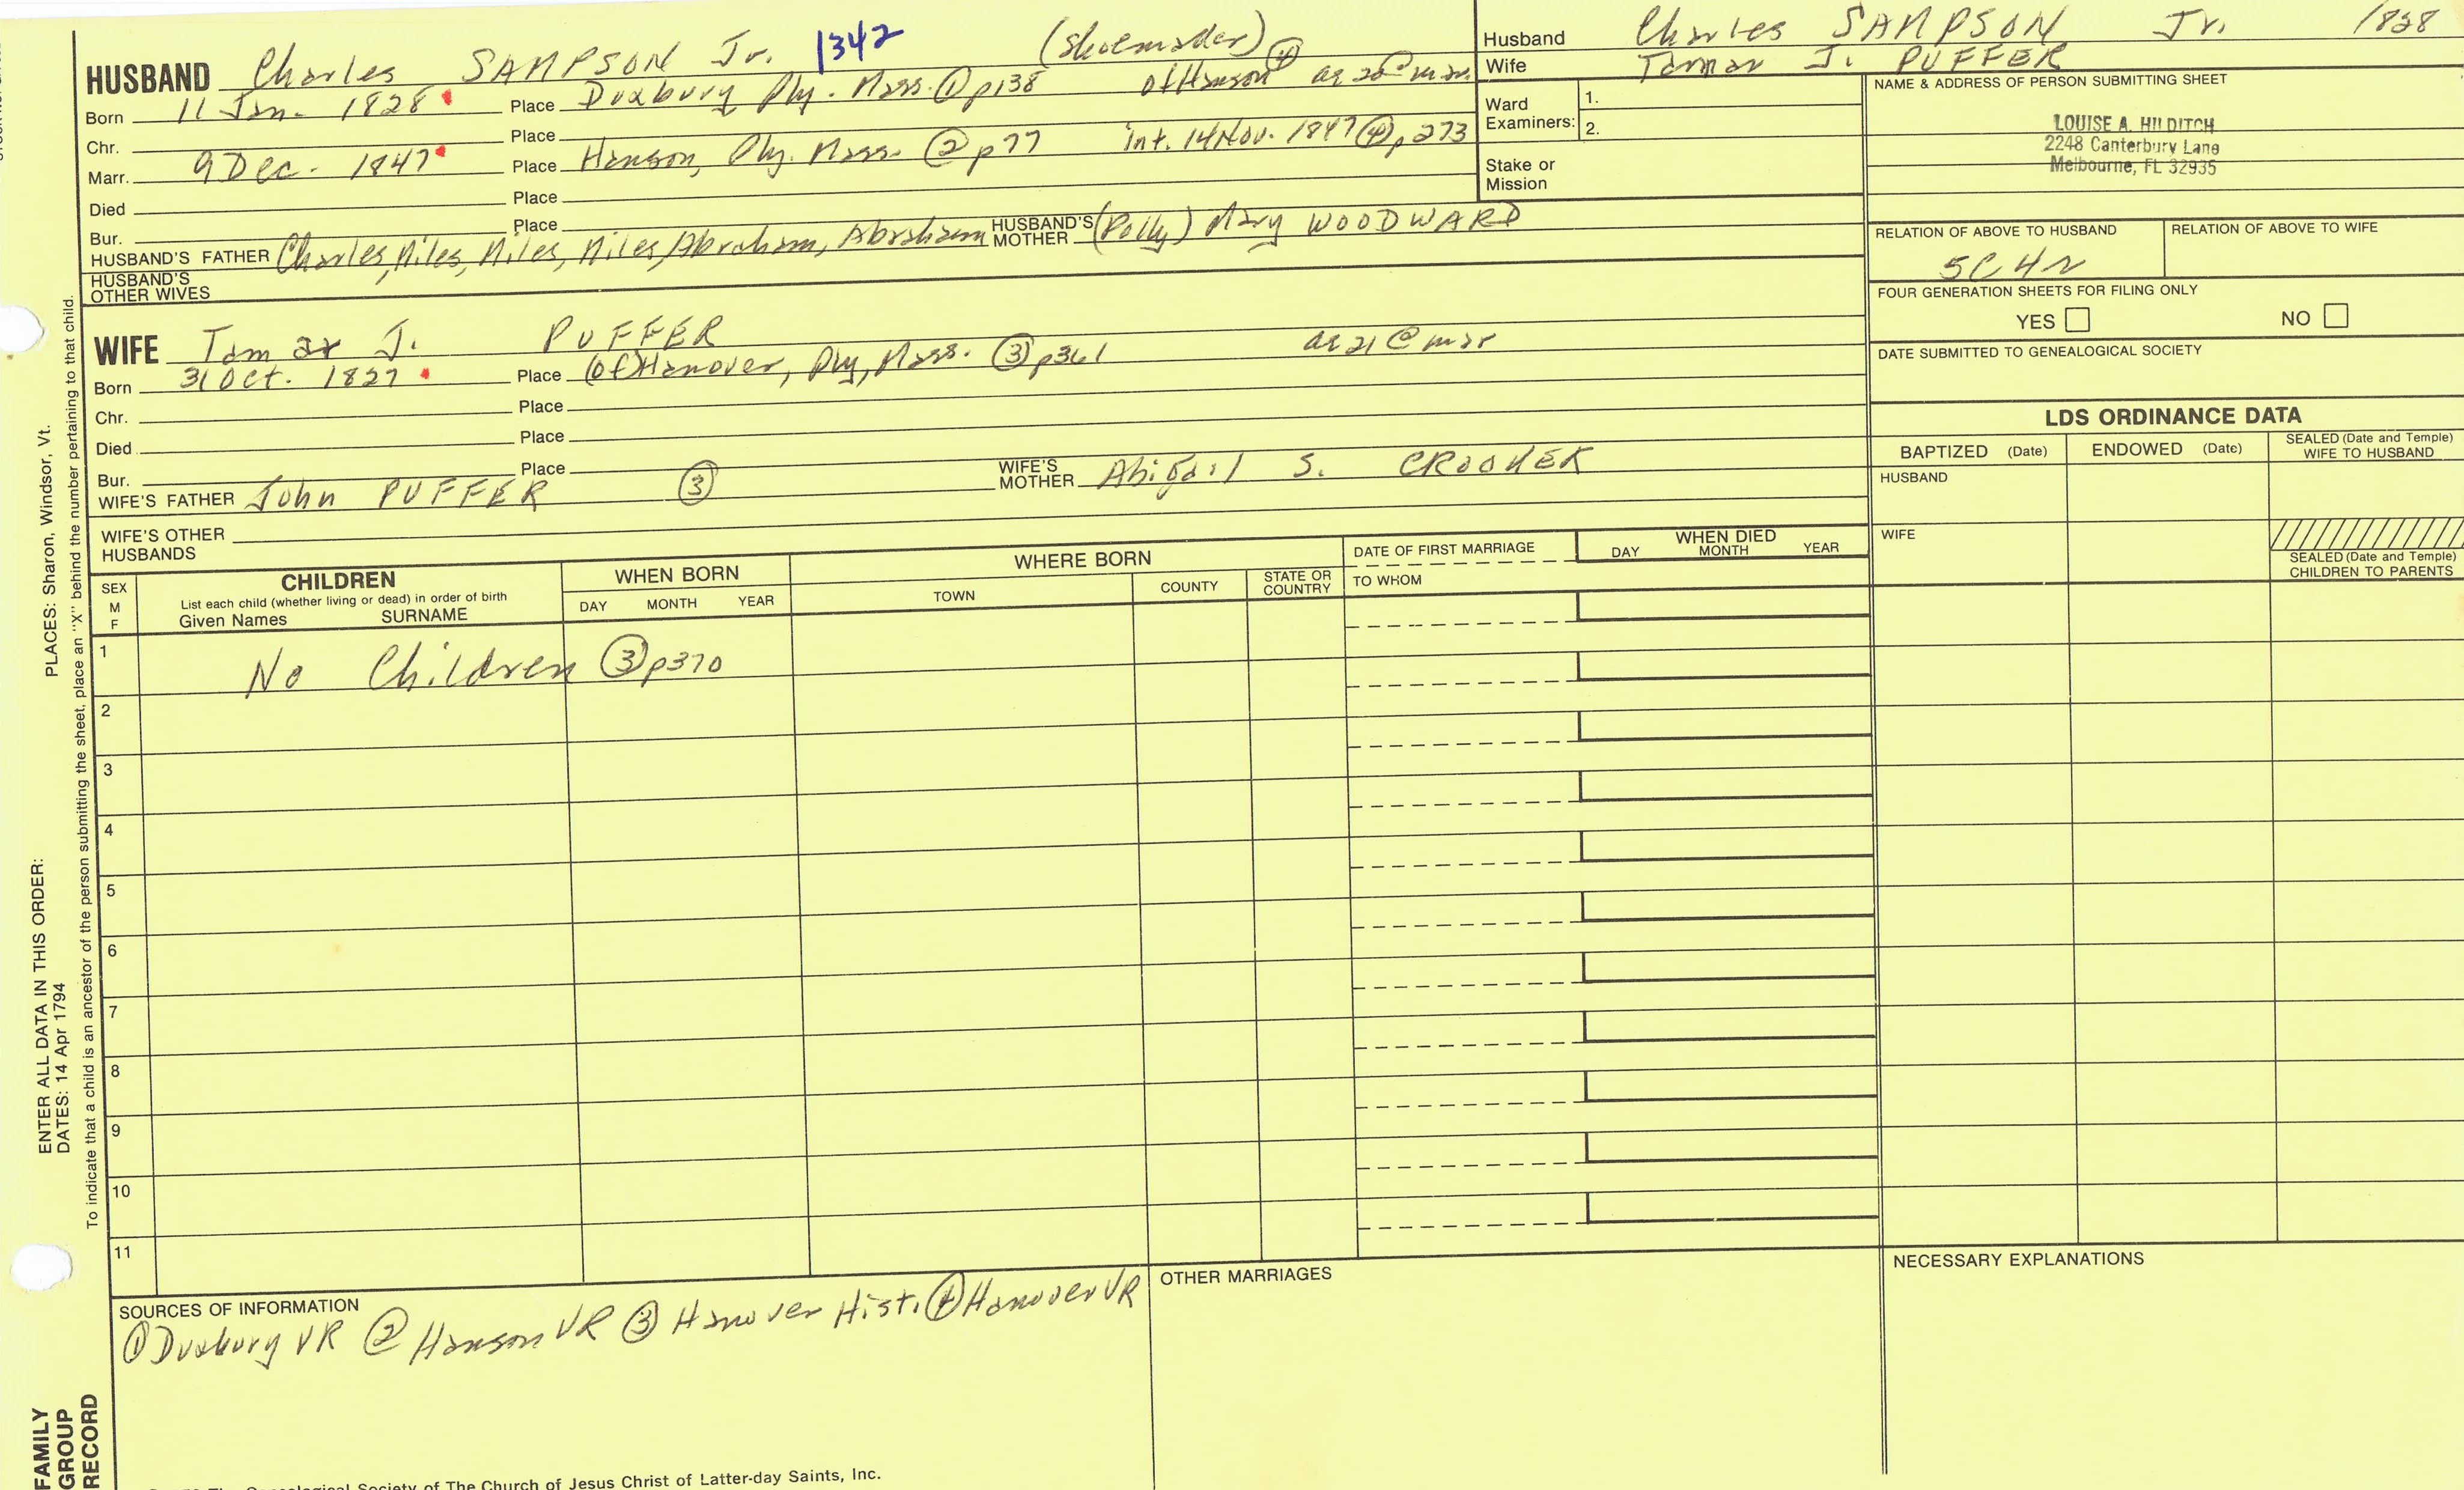 HUSBAND Charles SAMPSON Jr. 1342 (Shoemaker) ④
Born 11 Jan. 1828 Place Duxbury Ply. Mass. ① p138 of Hanson ae 20 @ mar.
Chr. Place
Marr. 9 Dec. 1847 Place Hanson, Ply. Mass. ② p77 int. 14 Nov. 1847 ④ p273
Died Place
Bur. Place
HUSBAND'S FATHER Charles, Miles, Miles, Miles, Abraham, Abraham HUSBAND'S MOTHER (Polly) Mary WOODWARD
HUSBAND'S OTHER WIVES
WIFE Tamar J. PUFFER
Born 31 Oct. 1827 Place (of) Hanover, Ply, Mass. ③ p361 ae 21 @ mar
Chr. Place
Died Place
Bur. Place
WIFE'S FATHER John PUFFER ③ WIFE'S MOTHER Abigail S. CROOKER
WIFE'S OTHER HUSBANDS
Husband Charles SAMPSON Jr. 1828
Wife Tamar J. PUFFER
Ward Examiners: 1.
2.
Stake or Mission
NAME & ADDRESS OF PERSON SUBMITTING SHEET
LOUISE A. HILDITCH
2248 Canterbury Lane
Melbourne, FL 32935
RELATION OF ABOVE TO HUSBAND RELATION OF ABOVE TO WIFE
5C4r
FOUR GENERATION SHEETS FOR FILING ONLY
YES NO
DATE SUBMITTED TO GENEALOGICAL SOCIETY
LDS ORDINANCE DATA
BAPTIZED (Date) ENDOWED (Date) SEALED (Date and Temple) WIFE TO HUSBAND
HUSBAND
WIFE
SEALED (Date and Temple) CHILDREN TO PARENTS
SEX M F
CHILDREN
List each child (whether living or dead) in order of birth
Given Names SURNAME
WHEN BORN
DAY MONTH YEAR
WHERE BORN
TOWN COUNTY STATE OR COUNTRY
DATE OF FIRST MARRIAGE
TO WHOM
WHEN DIED
DAY MONTH YEAR
1 No Children ③ p370
2
3
4
5
6
7
8
9
10
11
SOURCES OF INFORMATION
① Duxbury VR ② Hanson VR ③ Hanover Hist. ④ Hanover VR
OTHER MARRIAGES
NECESSARY EXPLANATIONS
Society of The Church of Jesus Christ of Latter-day Saints, Inc.
ENTER ALL DATA IN THIS ORDER:
DATES: 14 Apr 1794
PLACES: Sharon, Windsor, Vt.
To indicate that a child is an ancestor of the person submitting the sheet, place an "X" behind the number pertaining to that child.
FAMILY
GROUP
RECORD